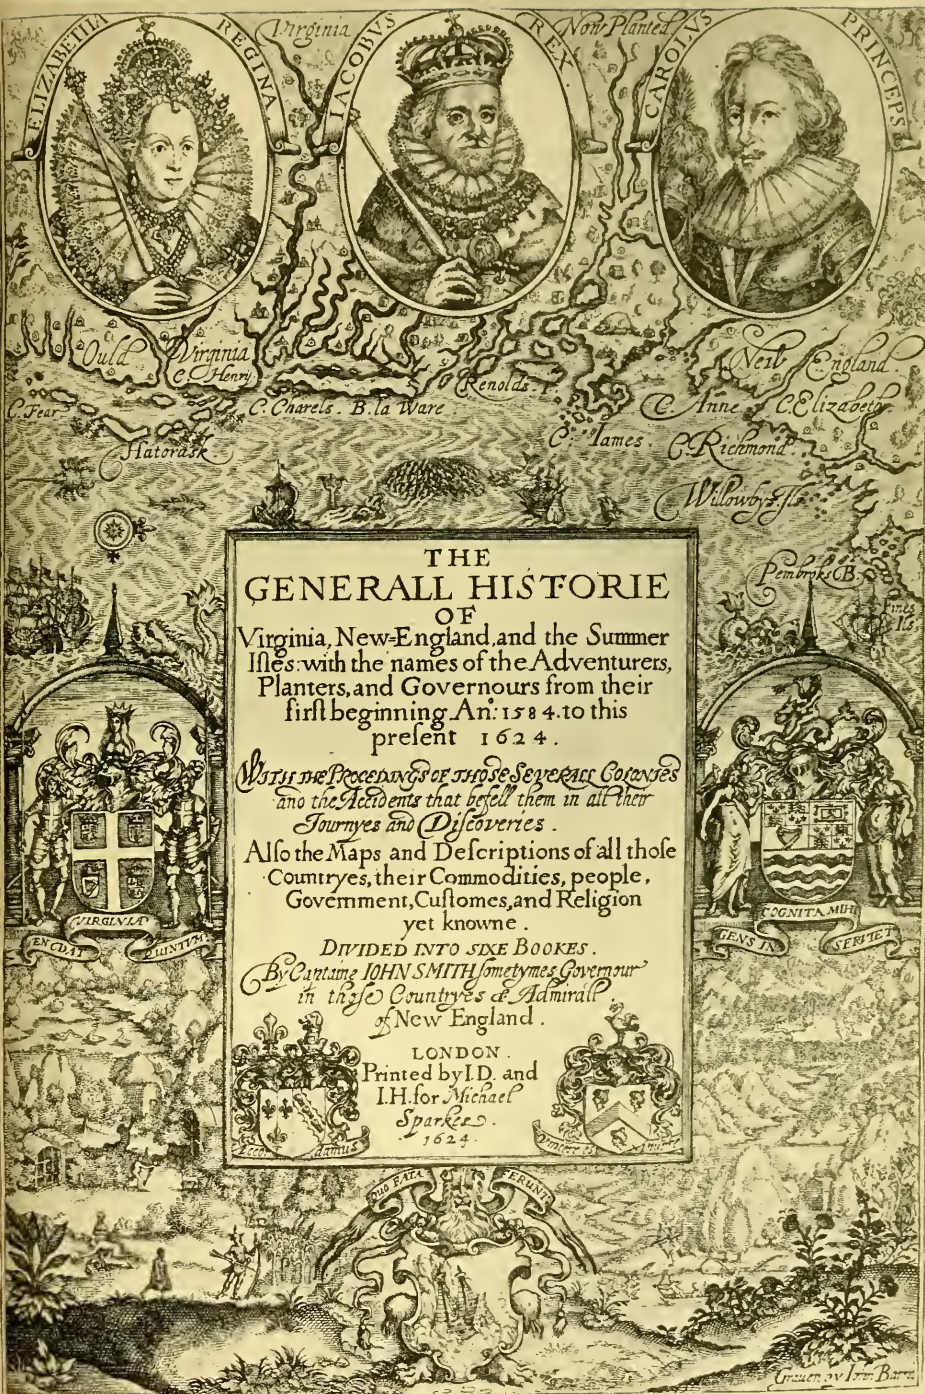 ELIZABETHA REGINA
Virginia
IACOBUS REX
Now Planted
CAROLVS PRINCEPS
Ould Virginia
C. Henry
Renolds
New England
C. Fear
C. Charels. B. la Ware
C. Anne
C. Elizabeth
Hatorask
C. Iames.
C. Richmond.
Willowbyes Ils
Pembroks B.
THE
GENERALL HISTORIE
OF
Virginia, New-England, and the Summer
Iſles: with the names of the Adventurers,
Planters, and Governours from their
firſt beginning. Anº: 1584. to this
preſent 1624.
WITH THE PROCEDINGS OF THOSE SEVERALL COLONIES
and the Accidents that befell them in all their
Journyes and Diſcoveries.
Alſo the Maps and Deſcriptions of all thoſe
Countryes, their Commodities, people,
Government, Cuſtomes, and Religion
yet knowne.
DIVIDED INTO SIXE BOOKES.
By Captaine IOHN SMITH ſometymes Governour
in thoſe Countryes & Admirall
of New England.
VIRGINIA
EN DAT QUINTVM
COGNITA MIHI
GENS IN SERVIET
LONDON.
Printed by I.D. and
I.H. for Michael
Sparkes.
1624.
Vincere est Vivere
QUO FATA FERUNT
Graven by